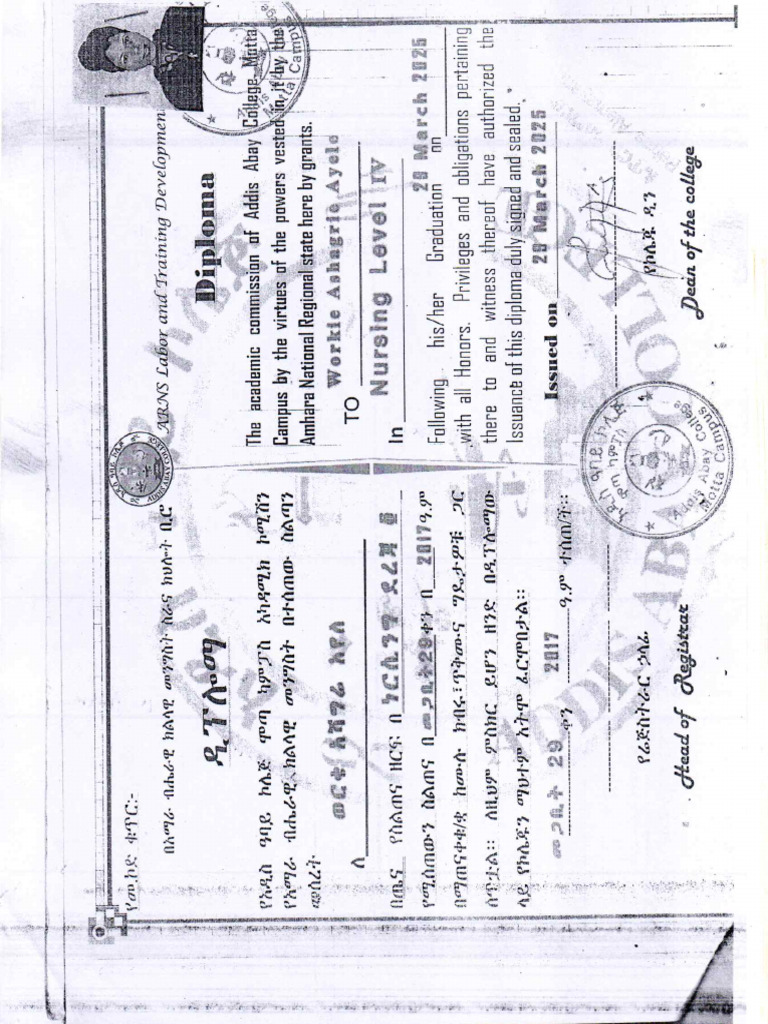 የመለያ ቁጥር:-
በአማራ ብሔራዊ ክልላዊ መንግስት ስራና ክህሎት ቢሮ
ዲፕሎማ
የአዲስ ዓባይ ኮሌጅ ሞጣ ካምፓስ አካዳሚክ ኮሚሽን
የአማራ ብሔራዊ ክልላዊ መንግስት በተሰጠው ስልጣን
መሰረት
ለ ወርቄ አሻግሬ አየለ
በጤና የስልጠና ዘርፍ በ ነርሲንግ ደረጃ ፬
የሚሰጠውን ስልጠና በ መጋቢት 29 ቀን በ 2017 ዓ.ም
በማጠናቀቁ/ቋ ከሙሉ ክብር፤ ጥቅሙና ግዴታዎቹ ጋር
ሰጥቷል። ለዚህም ምስክር ይሆን ዘንድ በዲፕሎማው
ላይ የኮሌጁን ማህተም አትሞ ፈርሞበታል።
መጋቢት 29 ቀን 2017 ዓ.ም ተሰጠ/ች።
የሬጅስተራር ኃላፊ
Head of Registrar
ARNS Labor and Training Development
Diploma
The academic commission of Addis Abay College Motta
Campus by the virtues of the powers vested in it by the
Amhara National Regional state here by grants.
TO Workie Ashagrie Ayele
In Nursing Level IV
Following his/her Graduation on 29 March 2025
with all Honors. Privileges and obligations pertaining
there to and witness thereof have authorized the
Issuance of this diploma duly signed and sealed.
Issued on 29 March 2025
የኮሌጁ ዲን
Dean of the college
አዲስ ዓባይ ኮሌጅ
ሞጣ ካምፓስ
Addis Abay College
Motta Campus